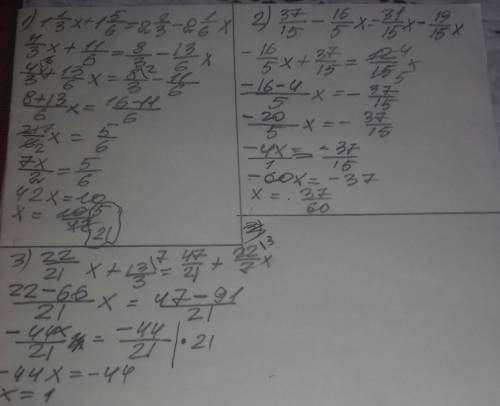 1) 1 1/3 x + 1 5/6 = 2 2/3 - 2 1/6 x
4/3 x + 11/6 = 8/3 - 13/6 x
4x/3 + 13/6 x = 8\2/3 - 11/6
8+13/6 x = 16-11/6
21/6 2 x = 5/6
7x/2 = 5/6
42x = 10
x = 5/21
2) 37/15 - 16/5 x = 31/15 x - 19/15 x
-16/5 x + 37/15 = 12 4/15 5 x
-16-4/5 x = - 37/15
-20/5 x = - 37/15
-4x/1 = - 37/15
-60x = -37
x = 37/60
3) 22/21 x + 13\7/3 = 47/21 + 22\3/7 x
22-66/21 x = 47-91/21
-44x/21 = -44/21 | • 21
-44x = -44
x = 1